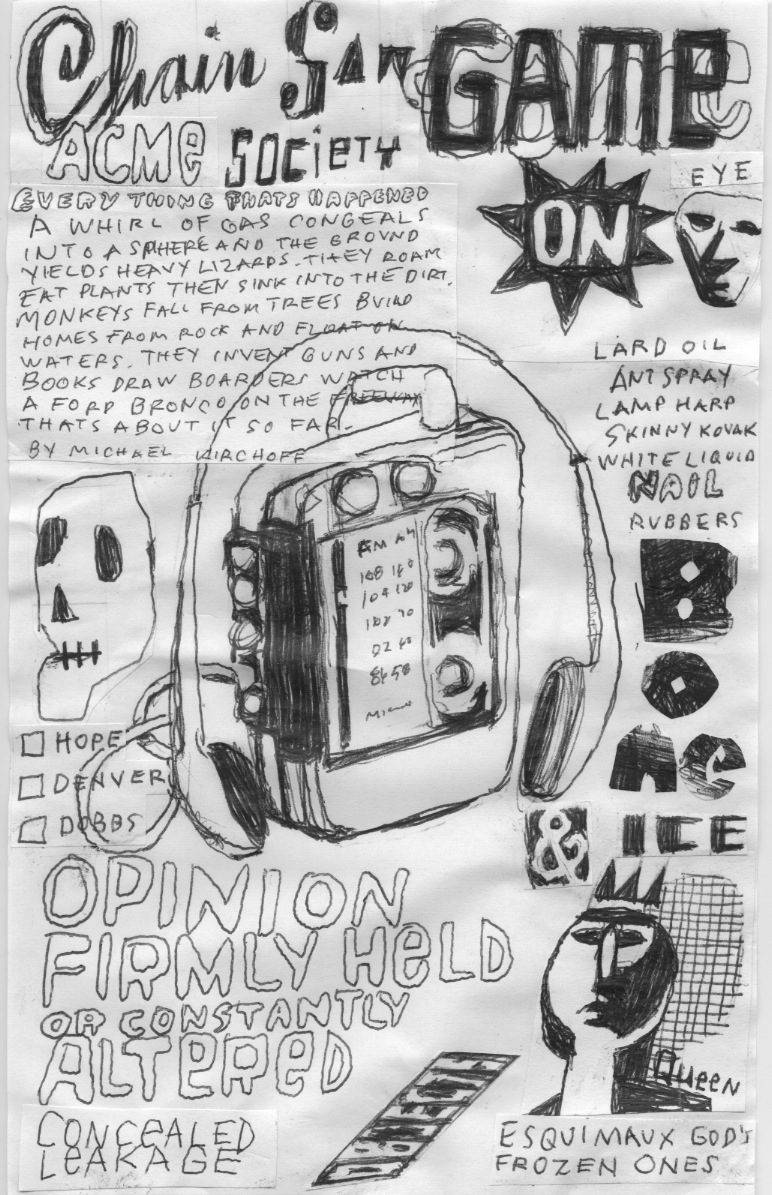 Chain Saw GAMe
ACMe SOCIETY
EYE
ON
EVERY THING THATS HAPPENED
A WHIRL OF GAS CONGEALS
INTO A SPHERE AND THE GROUND
YIELDS HEAVY LIZARDS. THEY ROAM
EAT PLANTS THEN SINK INTO THE DIRT.
MONKEYS FALL FROM TREES BUILD
HOMES FROM ROCK AND FLOAT ON
WATERS. THEY INVENT GUNS AND
BOOKS DRAW BOARDERS WATCH
A FORD BRONCO ON THE FREEWAY
THATS ABOUT IT SO FAR.
BY MICHAEL KIRCHOFF
LARD OIL
ANT SPRAY
LAMP HARP
SKINNY KOVAK
WHITE LIQUID
NAIL
RUBBERS
FM AM
108 160
104 120
100 70
92 60
88 50
B
O
Ne
& ICE
HOPE
DENVER
DOBBS
OPINION
FIRMLY HeLD
OR CONSTANTLY
ALTeReD
QUeeN
CONCeALED
LeAKAGE
ESQUIMAUX GOD'S
FROZEN ONES